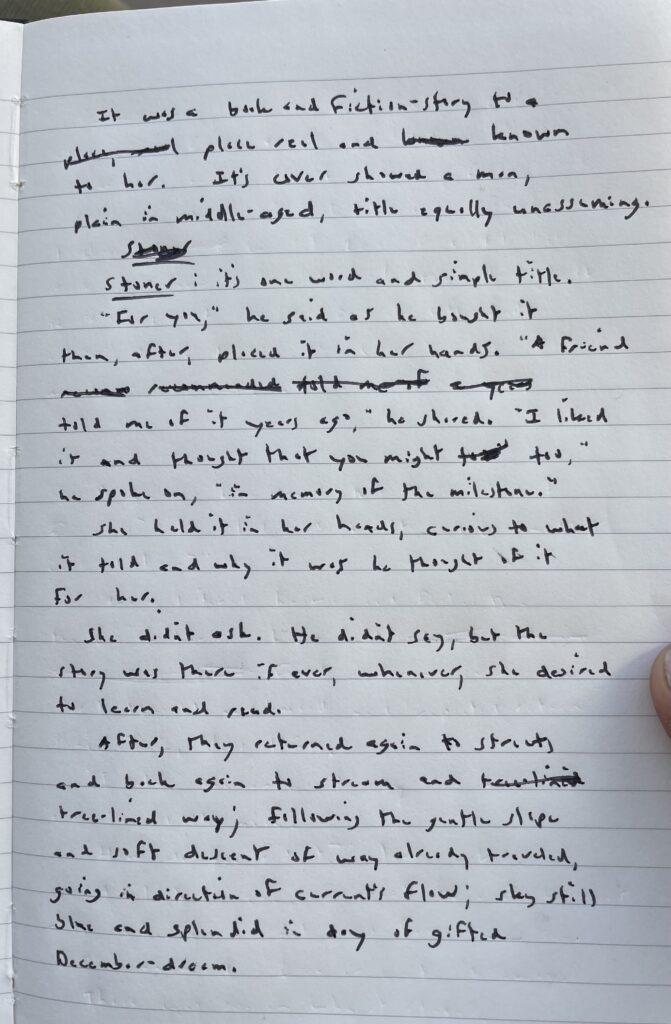 It was a book and fiction-story to a
place, real place real and known known
to her. It's cover showed a man,
plain in middle-aged, title equally unassuming.
Stoner
Stoner: it's one word and simple title.
"For you," he said as he bought it
then, after, placed it in her hands. "A friend
recommended told me of a years
told me of it years ago," he shared. "I liked
it and thought that you might too too,"
he spoke on, "in memory of the milestone."
She held it in her hands, curious to what
it told and why it was he thought of it
for her.
She didn't ask. He didn't say, but the
story was there if ever, whenever, she desired
to learn and read.
After, they returned again to streets
and back again to stream and treelined
tree-lined way; following the gentle slope
and soft descent of way already traveled,
going in direction of current's flow; sky still
blue and splendid in day of gifted
December-dream.